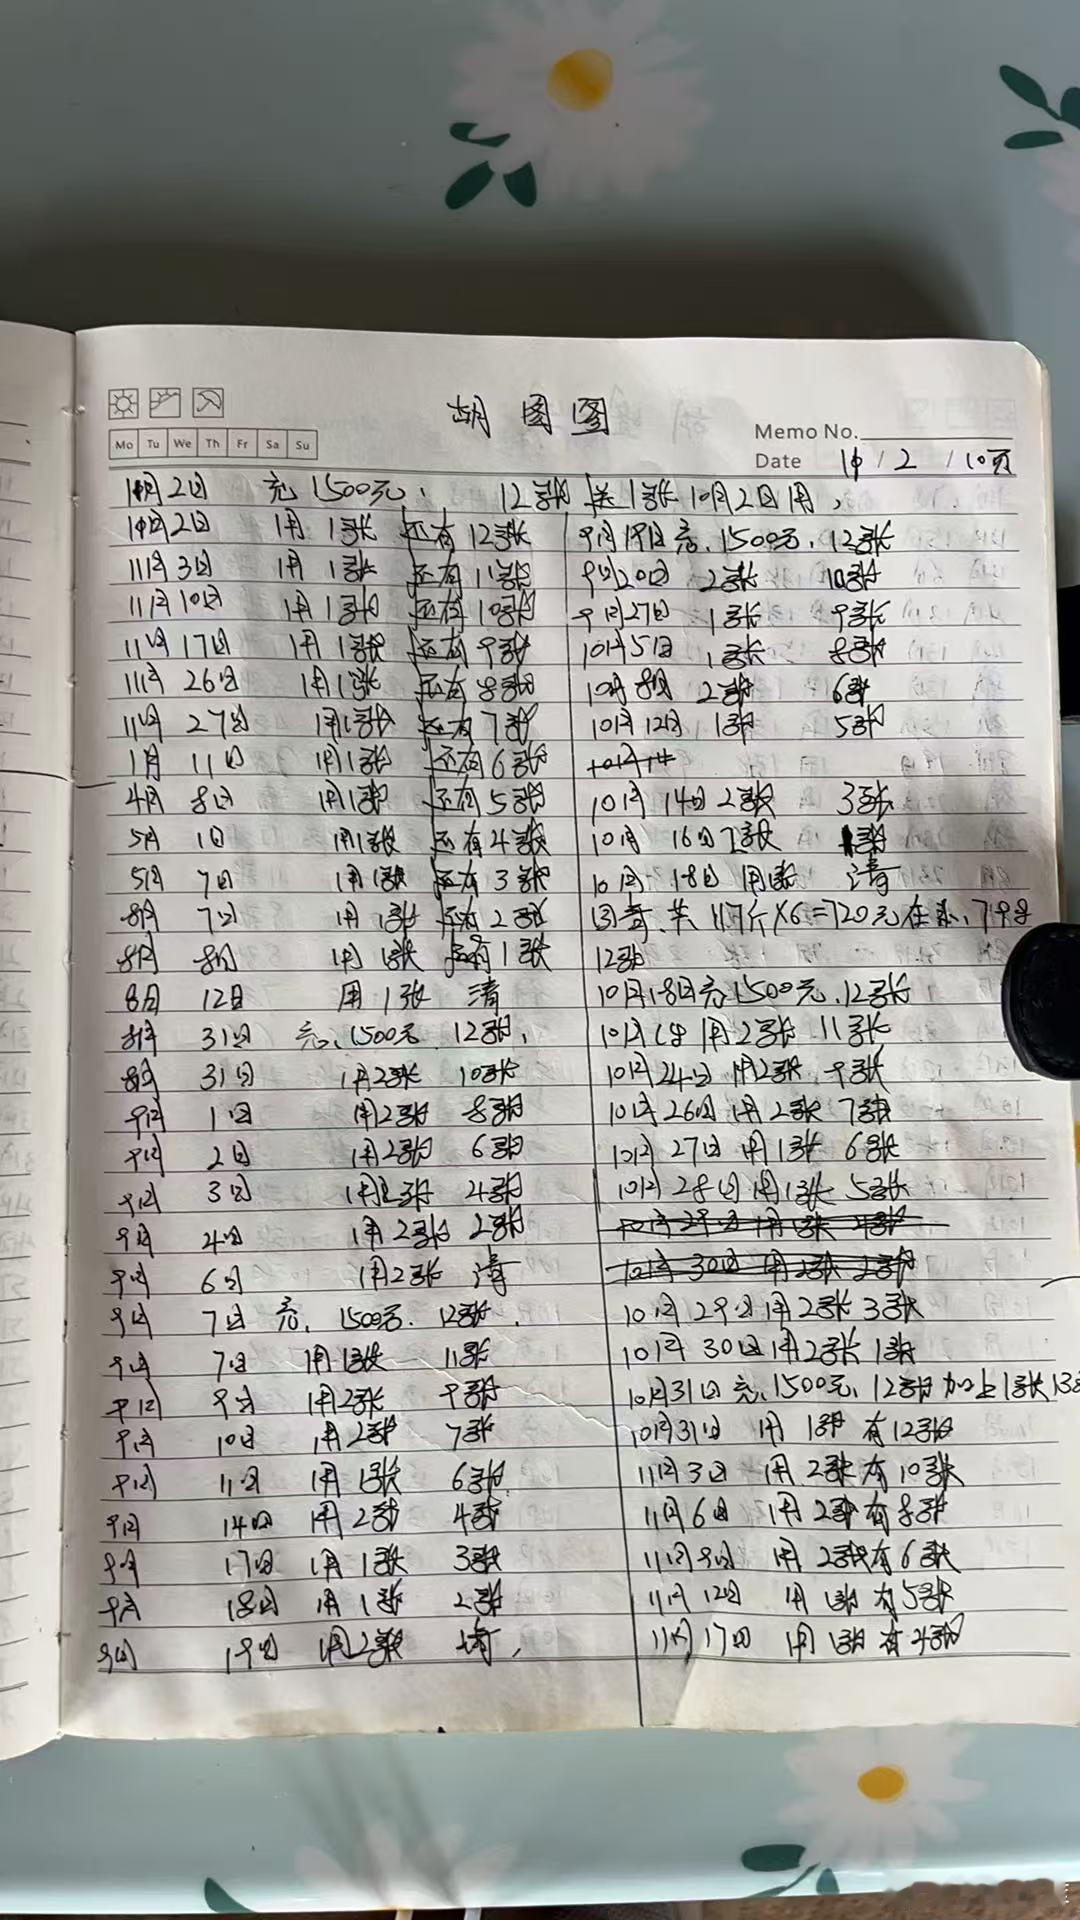 胡图图
Mo Tu We Th Fr Sa Su
Memo No.
Date 10/2/10页
10月2日 充1500元, 12张 送1张10月2日用,
10月2日 用1张 还有12张
11月3日 用1张 还有11张
11月10日 用1张 还有10张
11月17日 用1张 还有9张
11月26日 用1张 还有8张
11月27日 用1张 还有7张
1月11日 用1张 还有6张
4月8日 用1张 还有5张
5月1日 用1张 还有4张
5月7日 用1张 还有3张
8月7日 用1张 还有2张
8月8日 用1张 还有1张
8月12日 用1张 清
8月31日 充、1500元 12张,
8月31日 用2张 10张
9月1日 用2张 8张
9月2日 用2张 6张
9月3日 用2张 4张
9月4日 用2张 2张
9月6日 用2张 清
9月7日 充、1500元. 12张.
9月7日 用1张 11张
9月9日 用2张 9张
9月10日 用2张 7张
9月11日 用1张 6张
9月14日 用2张 4张
9月17日 用1张 3张
9月18日 用1张 2张
9月19日 用2张 清,
9月19日充、1500元、12张
9月20日 2张 10张
9月27日 1张 9张
10月5日 1张 8张
10月8日 2张 6张
10月12日 1张 5张
10月14日 2张 3张
10月16日 2张 1张
10月18日 用1张 清
117斤×6=720元在
12张
10月18日充1500元、12张
10月18 用2张 11张
10月24日 用2张 9张
10月26日 用2张 7张
10月27日 用1张 6张
10月28日 用1张 5张
10月29日 用1张 4张
10月30日 用2张 2张
10月29日用2张 3张
10月30日用2张 1张
10月31日充、1500元、12张加上1张13
10月31日 用1张 有12张
11月3日 用2张有10张
11月6日 用2张有8张
11月9日 用2张有6张
11月12日 用1张有5张
11月17日 用1张有4张